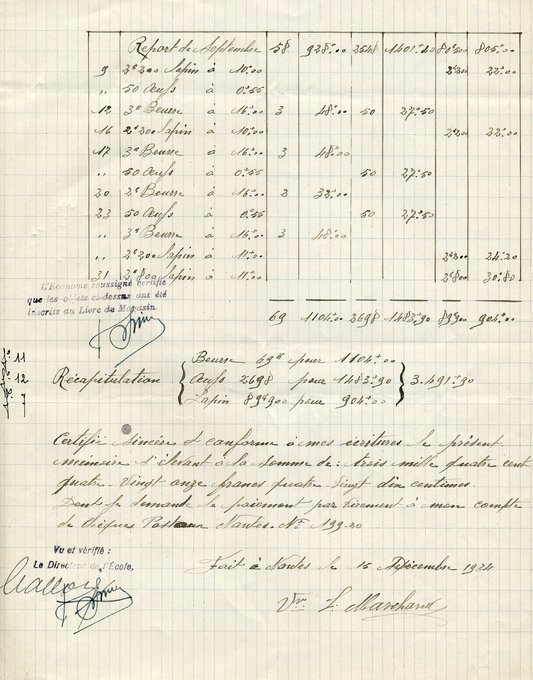 Report de Septembre 58 928"00 2548 1401"40 80"500 805"00
9 2"200 Lapin à 10"00 2"200 22"00
" 50 Œufs à 0"55
12 3" Beurre à 16"00 3 48"00 50 27"50
16 2"200 Lapin à 10"00 2"200 22"00
17 3" Beurre à 16"00 3 48"00
" 50 Œufs à 0"55 50 27"50
20 2" Beurre à 16"00 2 32"00
23 50 Œufs à 0"55 50 27"50
" 3" Beurre à 16"00 3 48"00
" 2"200 Lapin à 11"00 2"200 24"20
31 2"800 Lapin à 11"00 2"800 30"80
L'Économe soussigné certifie
que les objets ci-dessus ont été
inscrits au Livre de Magasin.
69 1104"00 2698 1483"90 89"900 904"00
11
12
7
Récapitulation
Beurre 69" pour 1104"00
Œufs 2698 pour 1483"90
Lapin 89"900 pour 904"00
3.491"90
Certifié sincère et conforme à mes écritures le présent
mémoire s'élevant à la somme de : trois mille quatre cent
quatre-vingt onze francs quatre vingt dix centimes.
Dont je demande le paiement par virement à mon compte
de Chèques Postaux Nantes. No 199-20
Vu et vérifié :
Le Directeur de l'École,
Fait à Nantes le 15 Décembre 1934
Vve L. Marchand